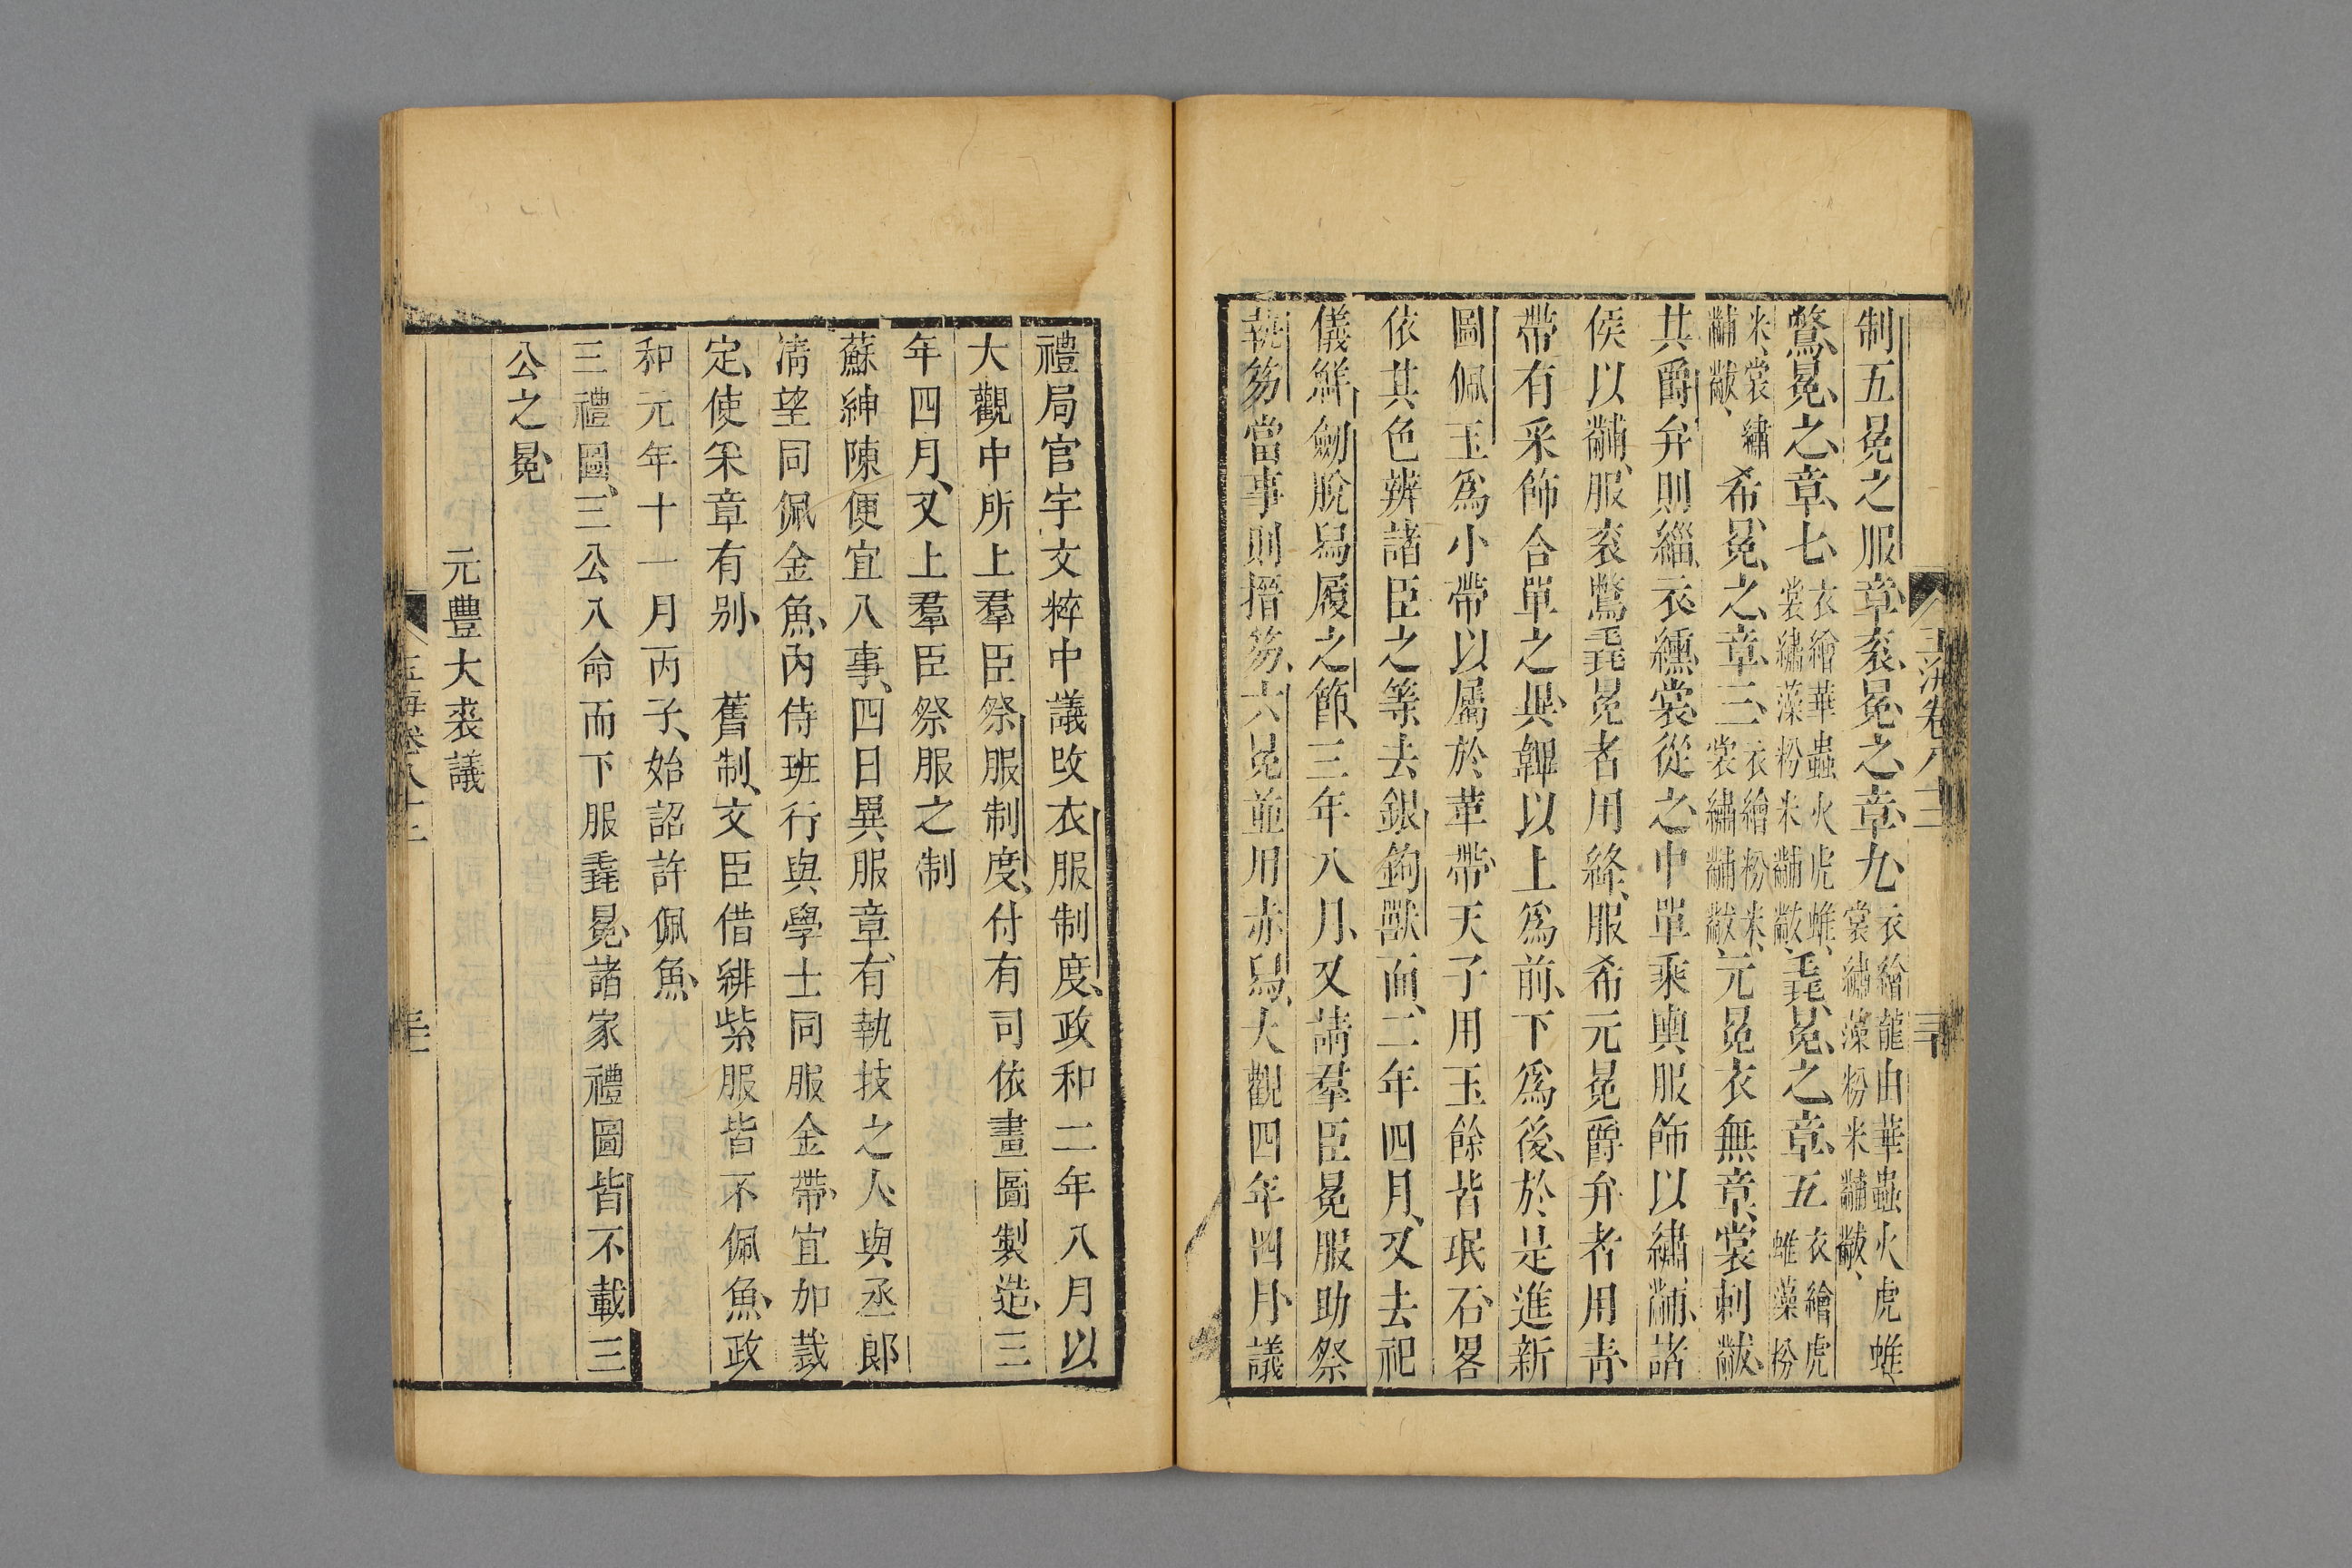 制五冕之服章衮冕之章九衣繪龍山華蟲火虎蜼裳繡藻粉米黼黻
鷩冕之章七衣繪華蟲火虎蜼裳繡藻粉米黼黻毳冕之章五衣繪虎蜼藻粉
米裳繡黼黻希冕之章三衣繪粉米裳繡黼黻元冕衣無章裳刺黻
其爵弁則緇衣纁裳從之中單乘輿服飾以繡黼諸
侯以黼服衮鷩毳冕者用絳服希元冕爵弁者用青
帶有采飾合單之與鞸以上爲前下爲後於是進新
圖佩玉爲小帶以屬於革帶天子用玉餘皆珉石畧
依其色辨諸臣之等去銀鉤獸面二年四月又去祀
儀鮮劒脫舄履之節三年八月又請羣臣冕服助祭
執笏當事則搢笏六冕並用赤舄大觀四年四月議
禮局官宇文粹中議改衣服制度政和二年八月以
大觀中所上羣臣祭服制度付有司依畫圖製造三
年四月又上羣臣祭服之制
蘇紳陳便宜八事四曰異服章有執技之人與丞郎
清望同佩金魚內侍班行與學士同服金帶宜加裁
定使采章有別　舊制文臣借緋紫服皆不佩魚政
和元年十一月丙子始詔許佩魚
三禮圖三公八命而下服毳冕諸家禮圖皆不載三
公之冕
元豐大裘議